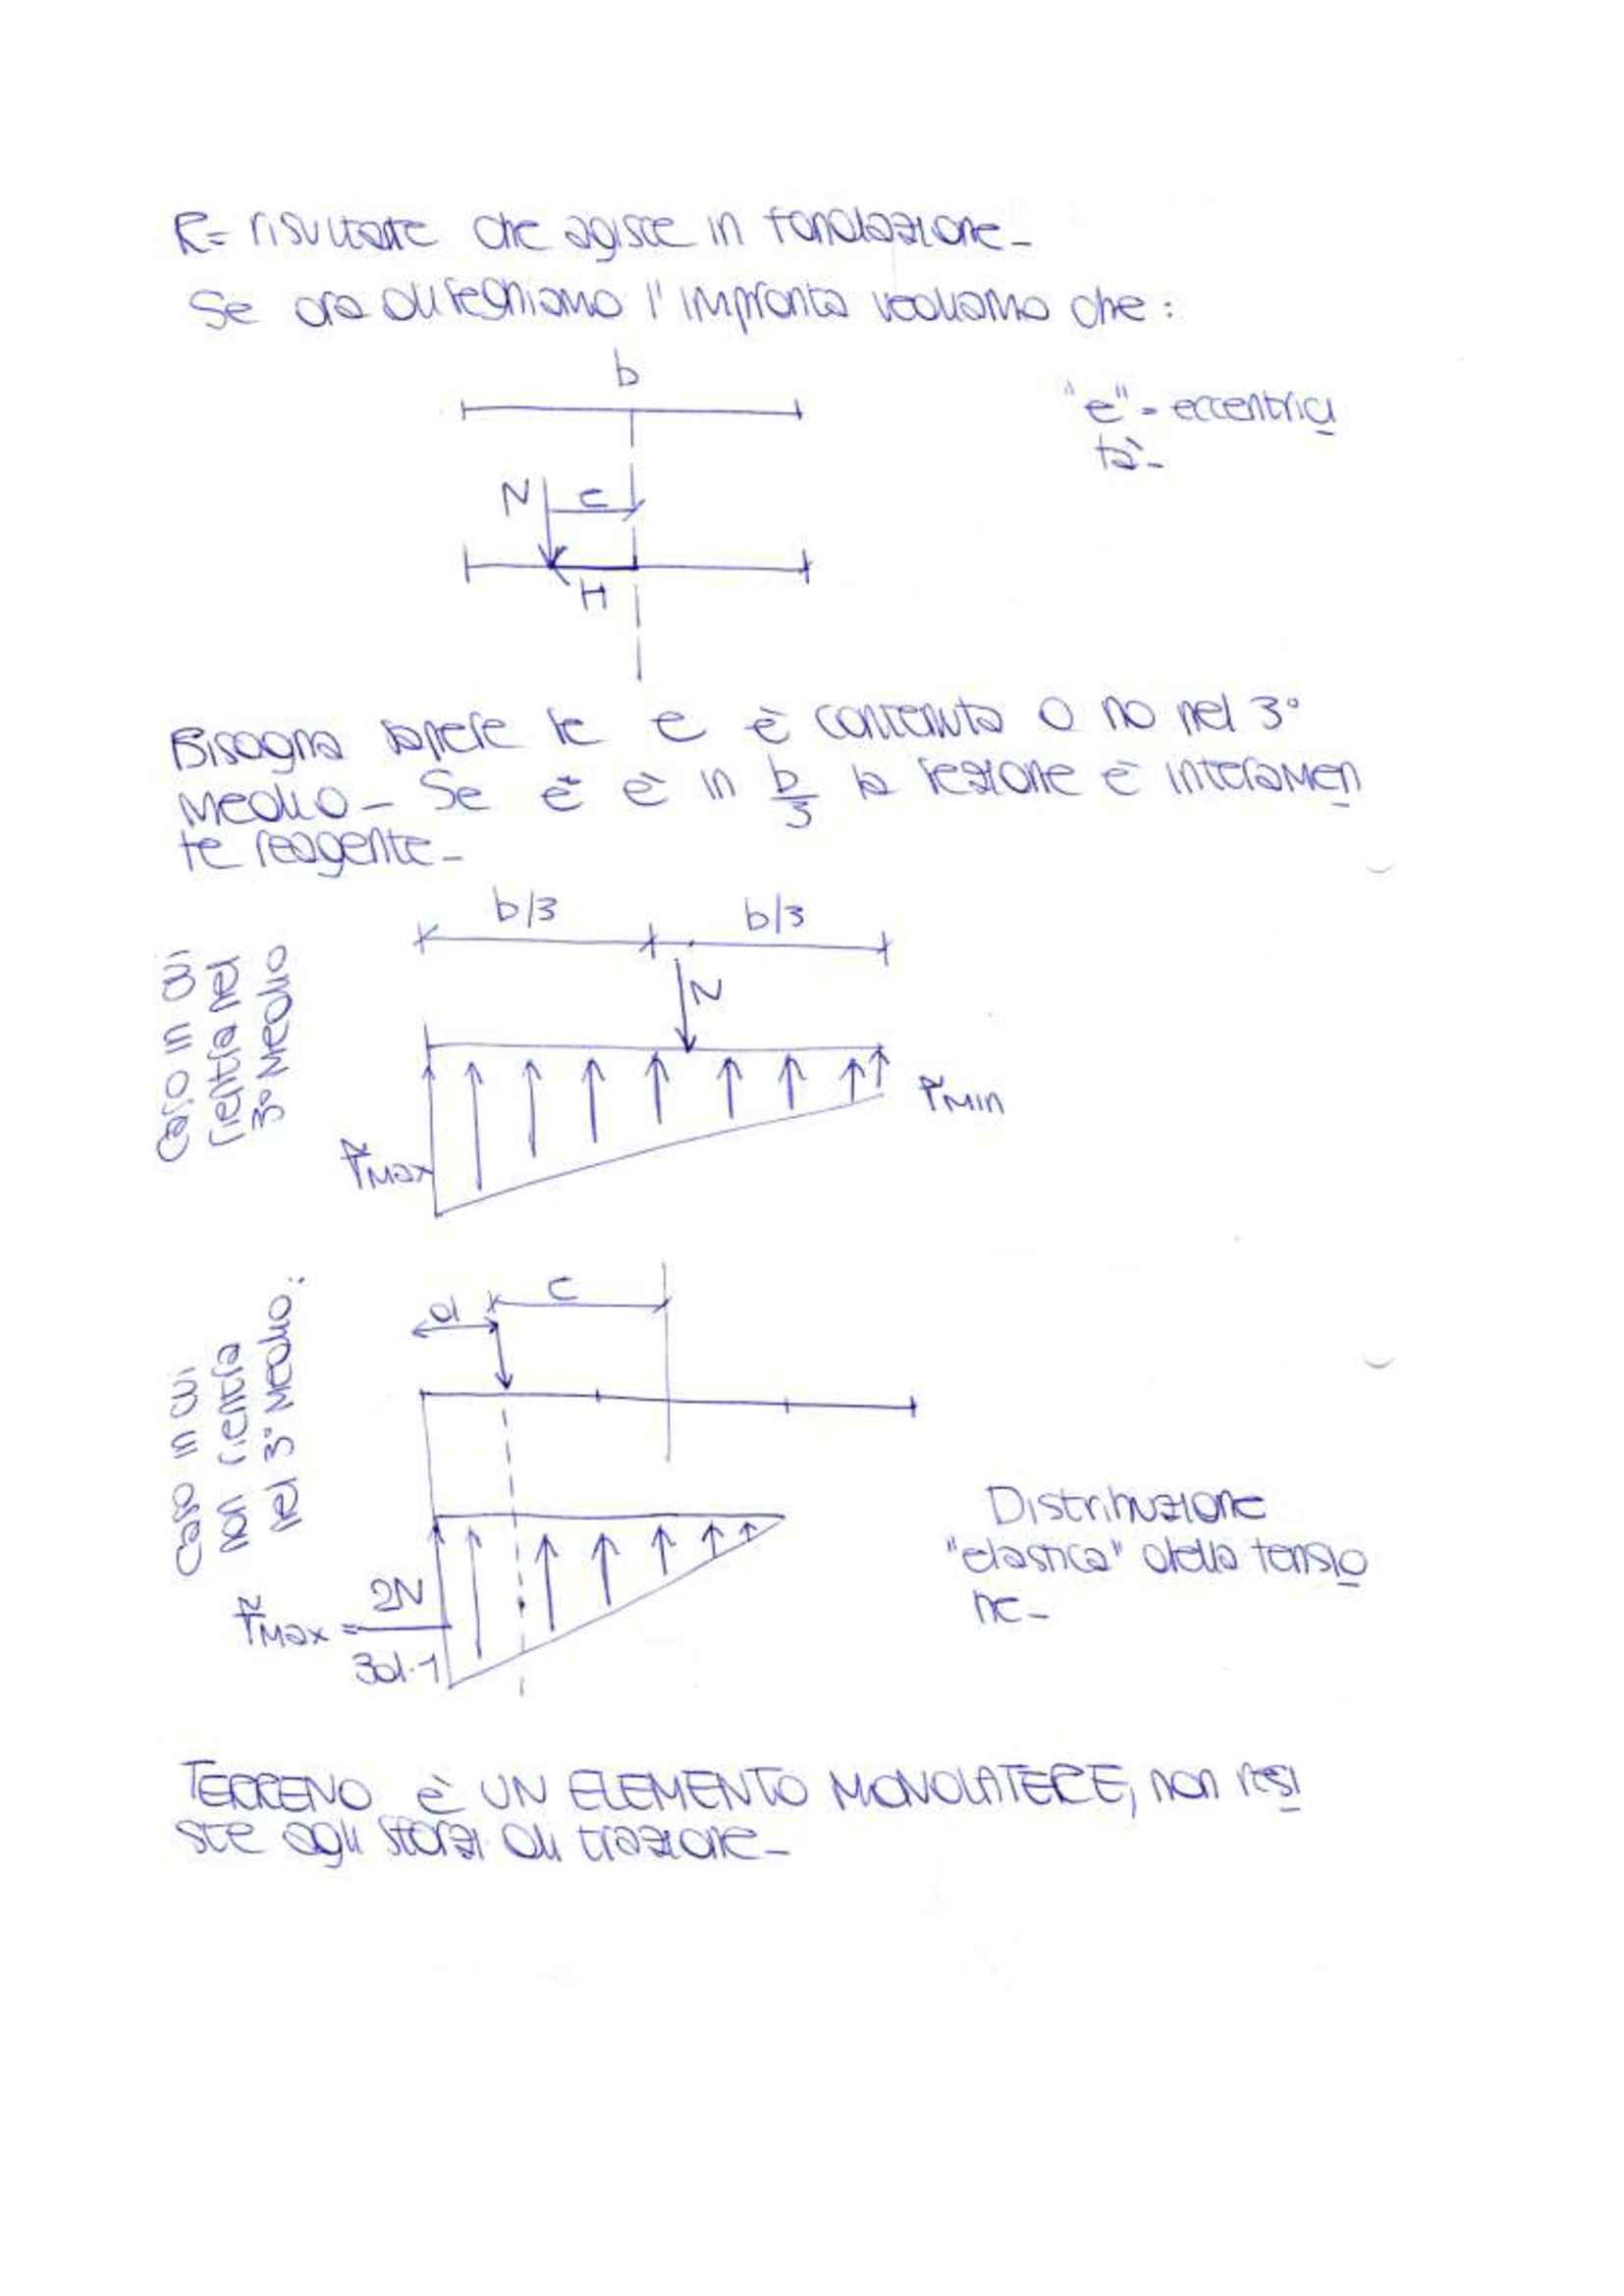 R= risultante che agisce in fondazione_
Se ora disegniamo l'impronta vediamo che:
b
"e" = eccentrici
tà_
N
e
H
Bisogna sapere se e è contenuto o no nel 3°
medio_ Se e è in b/3 la sezione è interamen
te reagente_
b/3
b/3
Caso in cui
rientra nel
3° medio
N
σMax
σMin
Caso in cui
non rientra
nel 3° medio:
d
e
σMax = 2N/3d·1
Distribuzione
"elastica" della tensio
ne_
TERRENO è UN ELEMENTO MONOLATERE, non resi
ste agli sforzi di trazione_